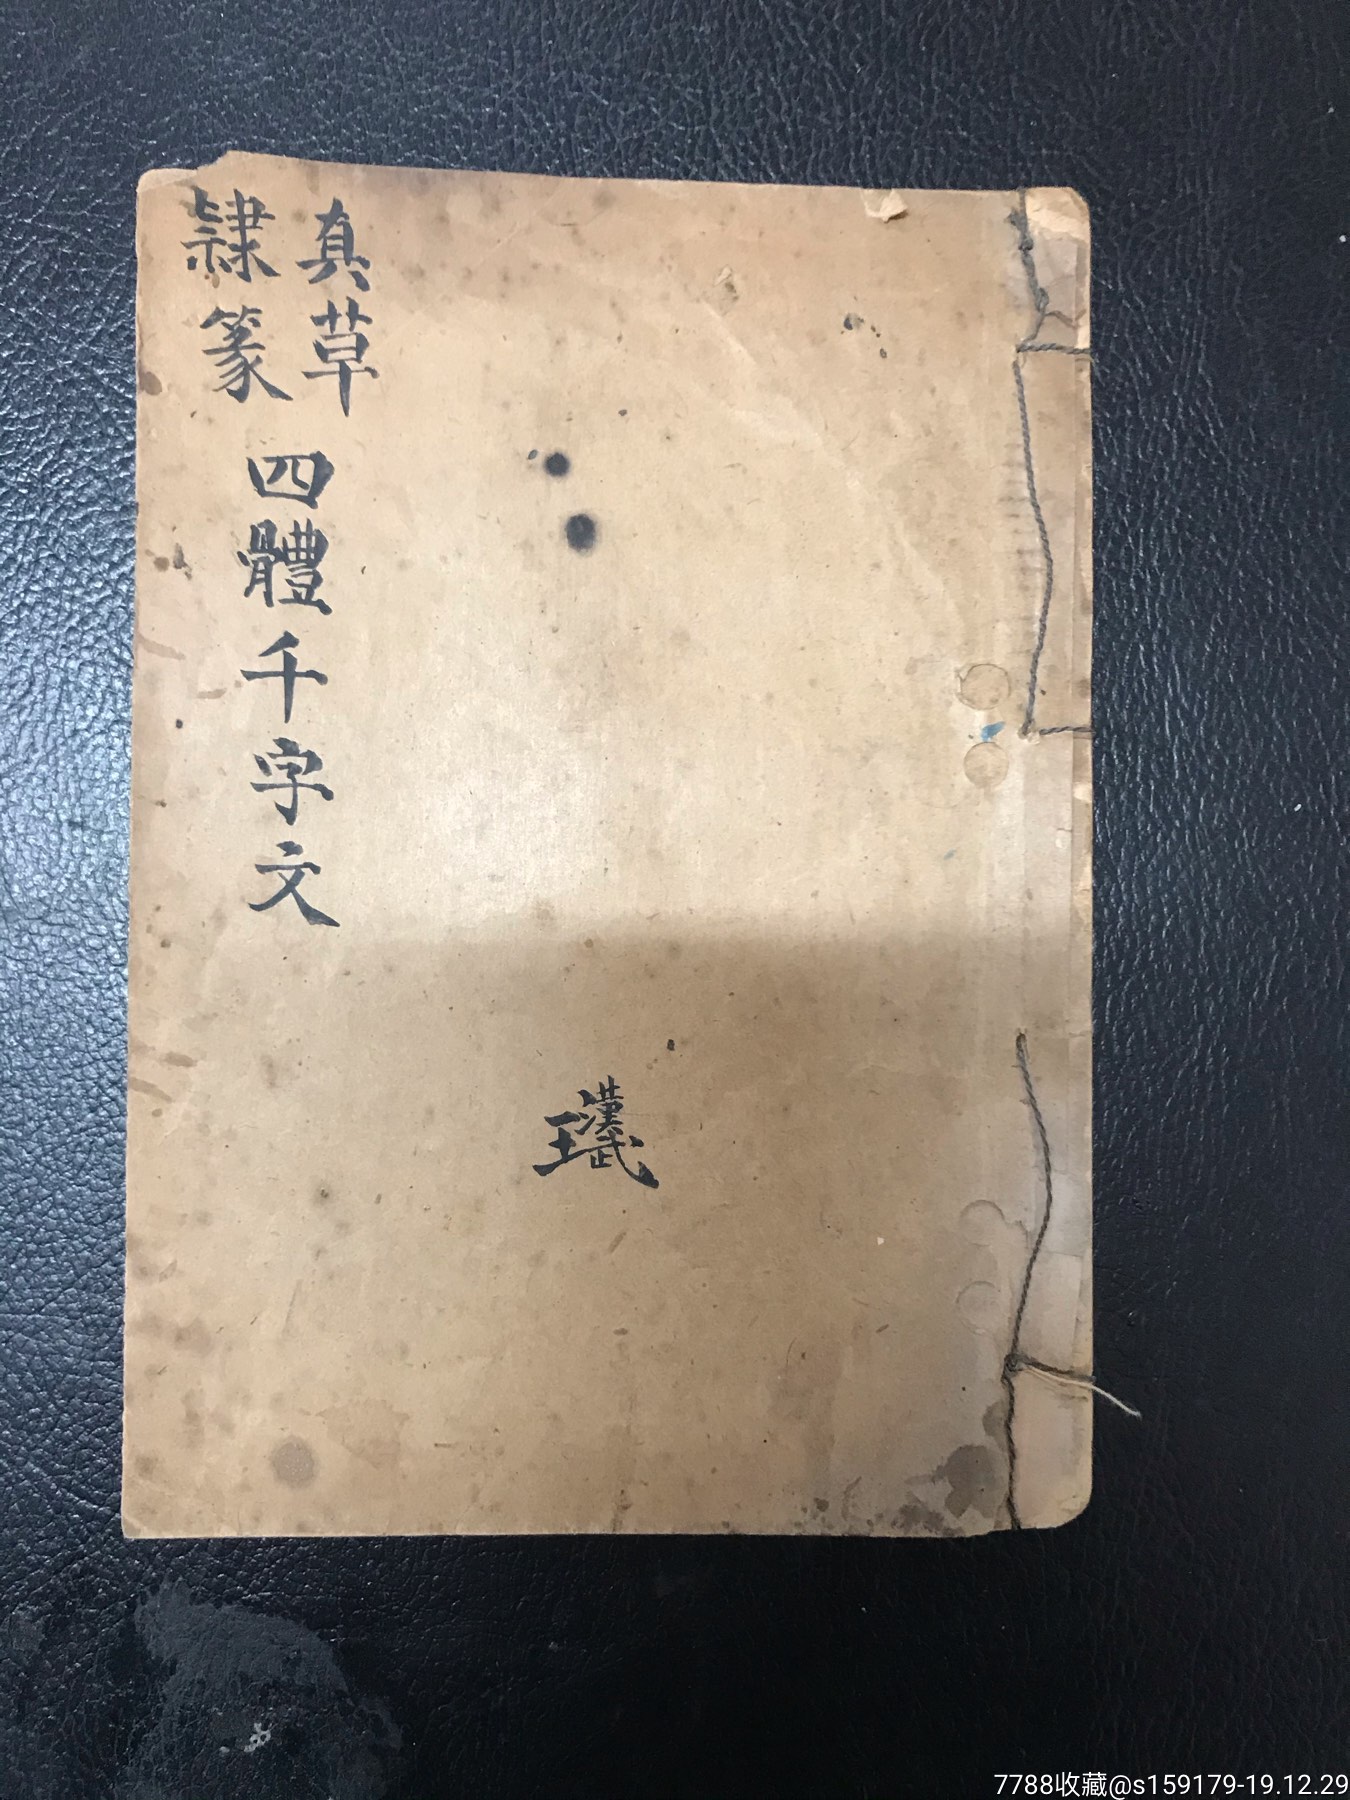 真草
隸篆
四體千字文
王漢武
7788收藏@s159179-19.12.29